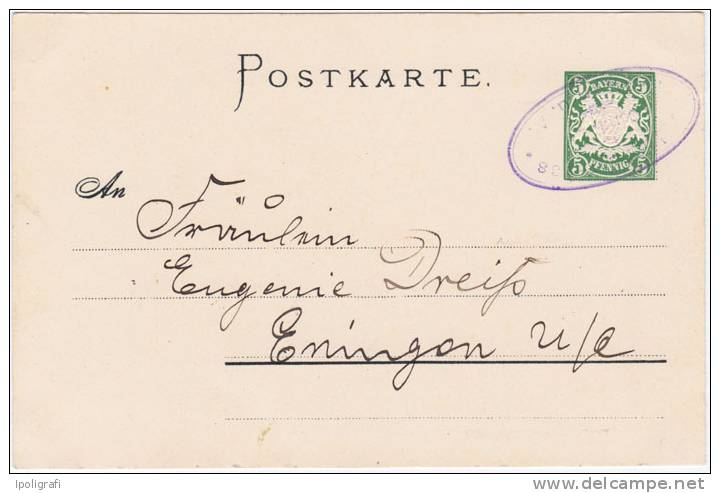 POSTKARTE.
5 BAYERN 5
5 PFENNIG 5
An
Fräulein
Eugenie Dreiß
Eningen u/A
lpoligrafi
www.delcampe.net